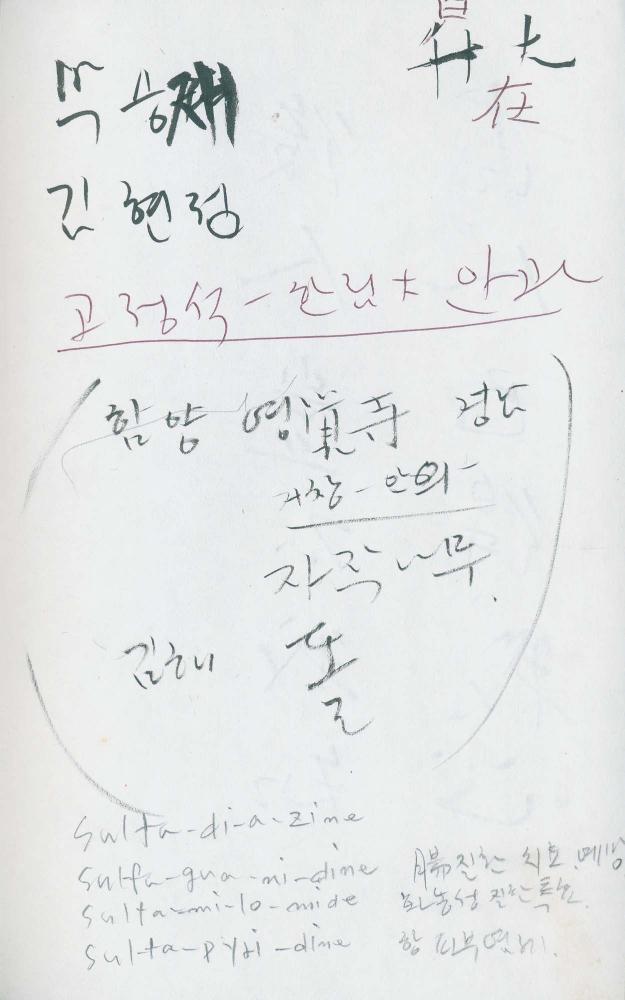 昇大
在
김현정
고정석-한림大 안과
함양 영覺寺 경남
거창-안의-
자작나무.
김해 돌
sulfa-di-a-zine
sulfa-gua-ni-dine 腸질환 치료.
sulfa-mi-lo-mide 화농성 질환 특효.
sulfa-pyri-dine 항 피부염